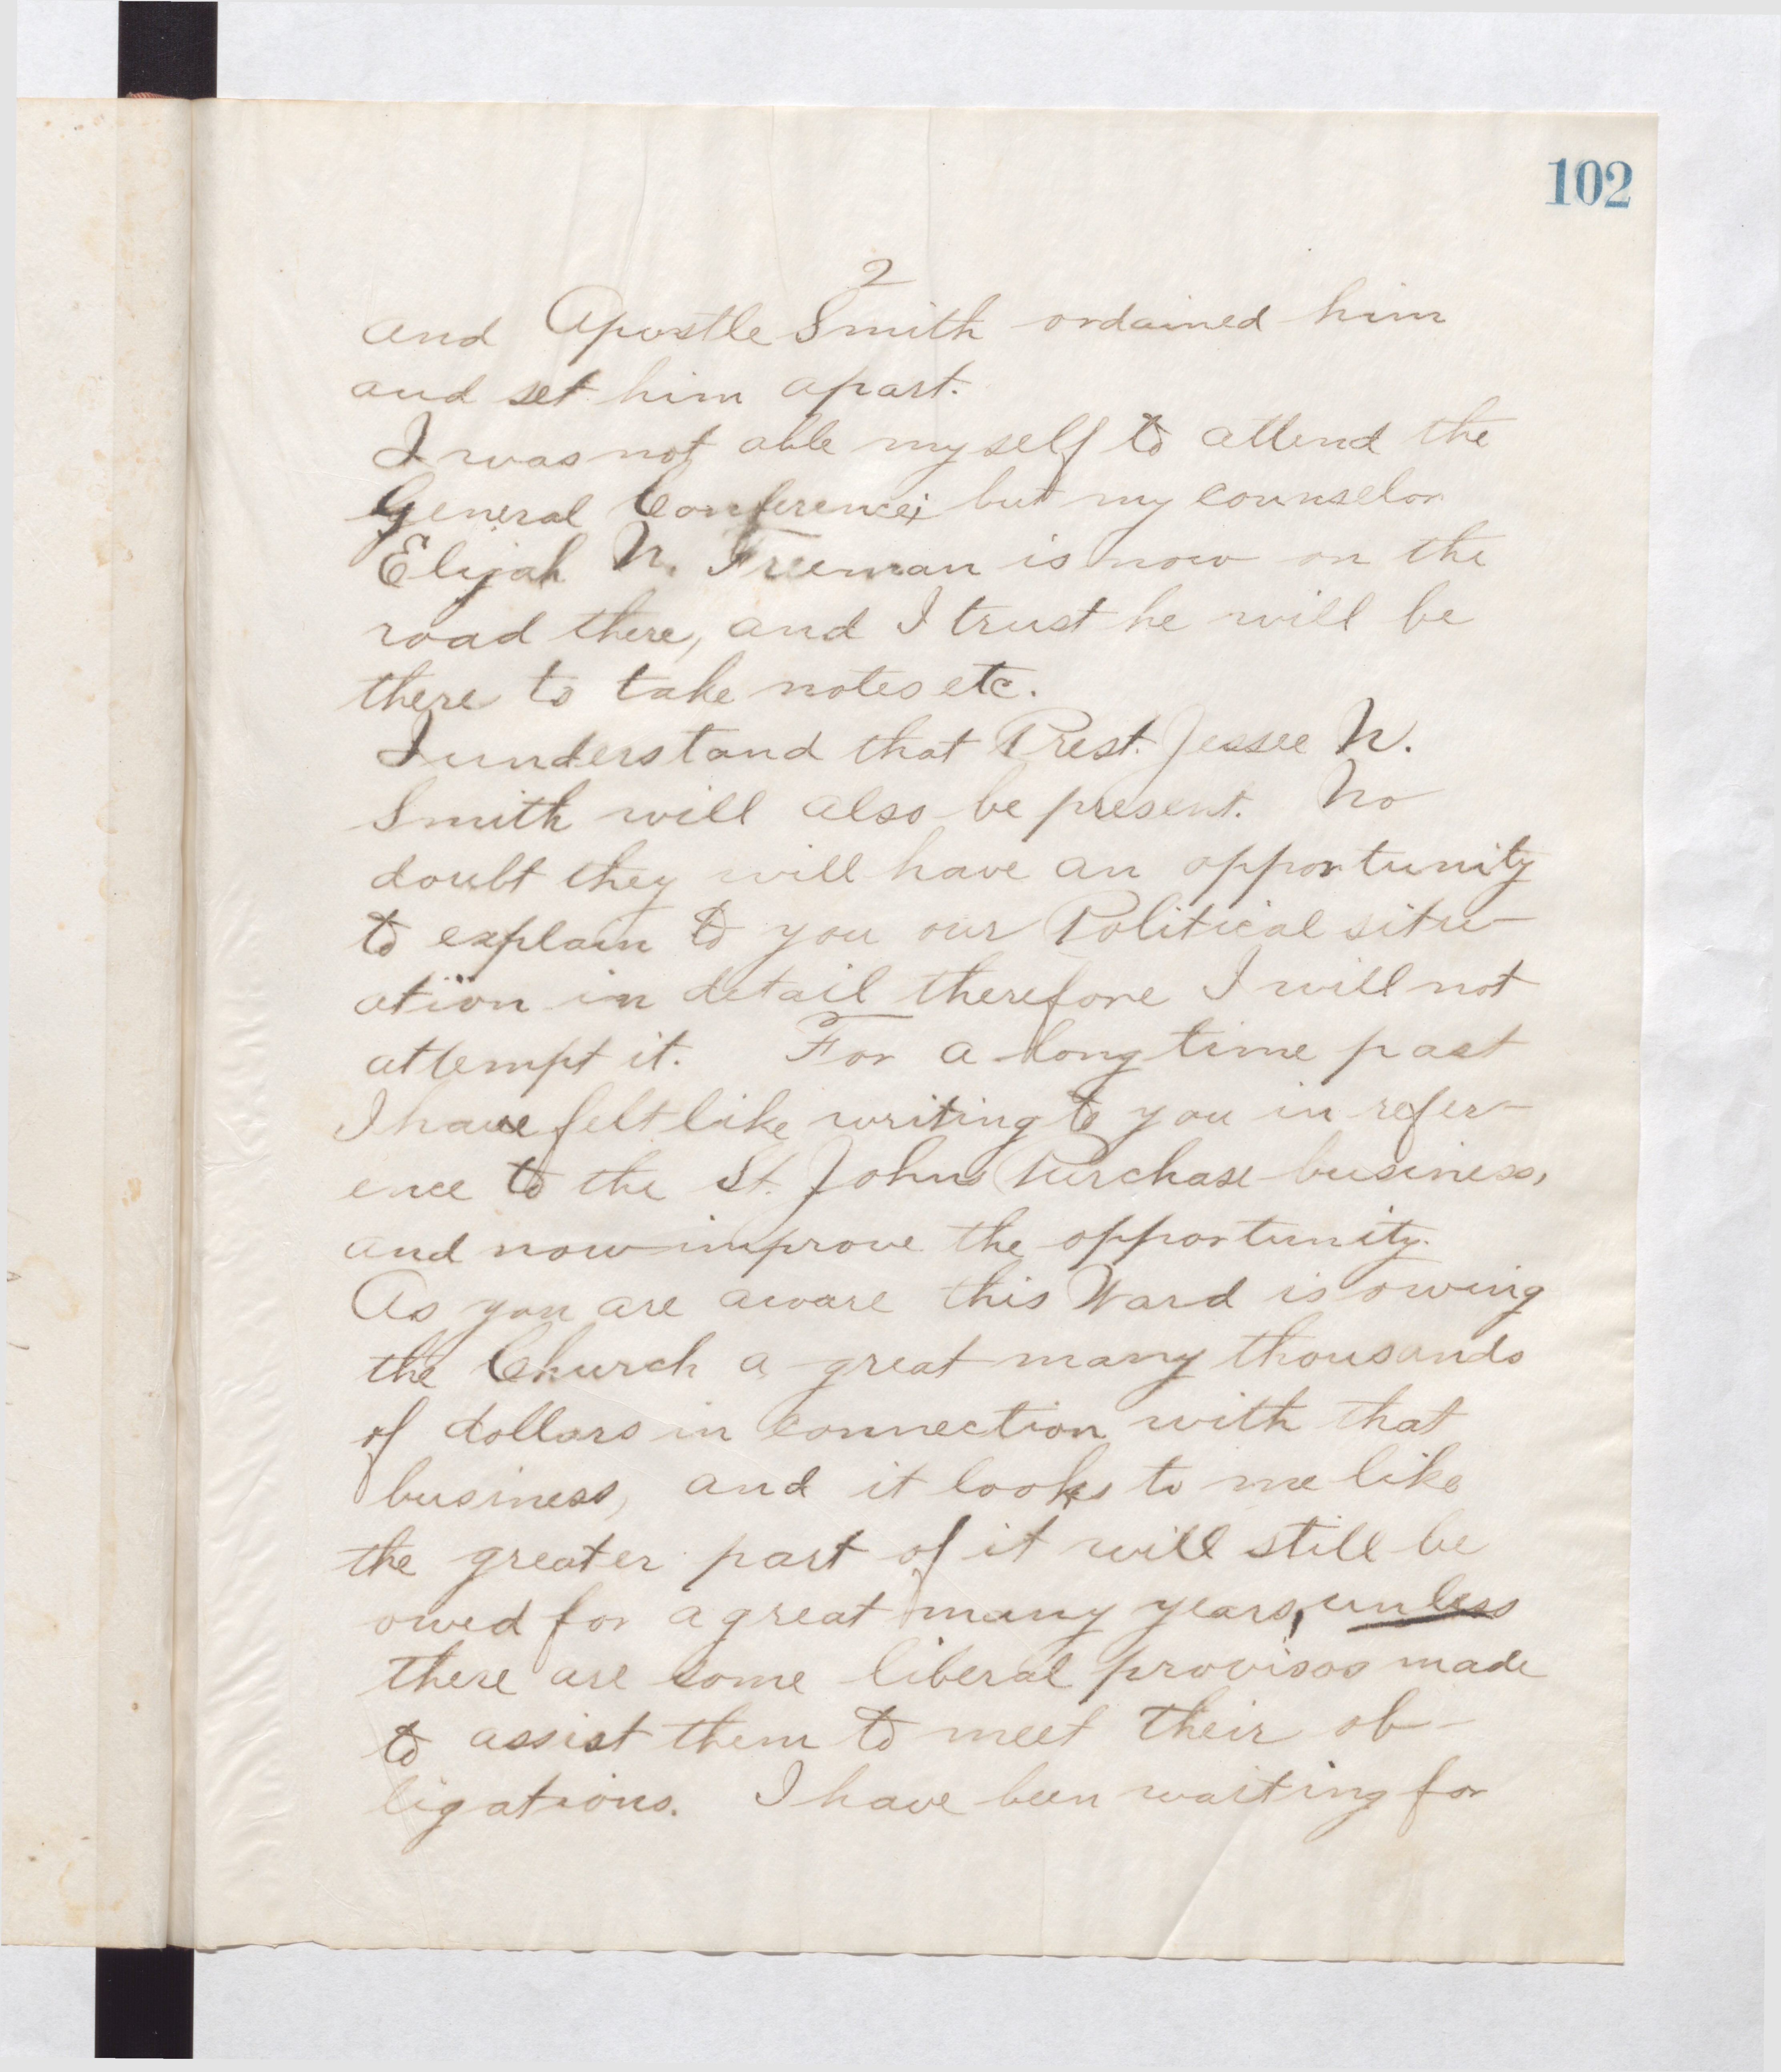 102
2
and Apostle Smith ordained him
and set him apart.
I was not able myself to attend the
General Conference; but my counselor
Elijah N. Freeman is now on the
road there, and I trust he will be
there to take notes etc.
I understand that Prest. Jessee N.
Smith will also be present. No
doubt they will have an opportunity
to explain to you our Political situ-
ation in detail therefore I will not
attempt it. For a long time past
I have felt like writing to you in refer-
ence to the St. Johns Purchase business,
and now improve the opportunity.
As you are aware this Ward is owing
the Church a great many thousands
of dollars in connection with that
business, and it looks to me like
the greater part of it will still be
owed for a great many years, unless
there are some liberal provisos made
to assist them to meet their ob-
ligations. I have been waiting for